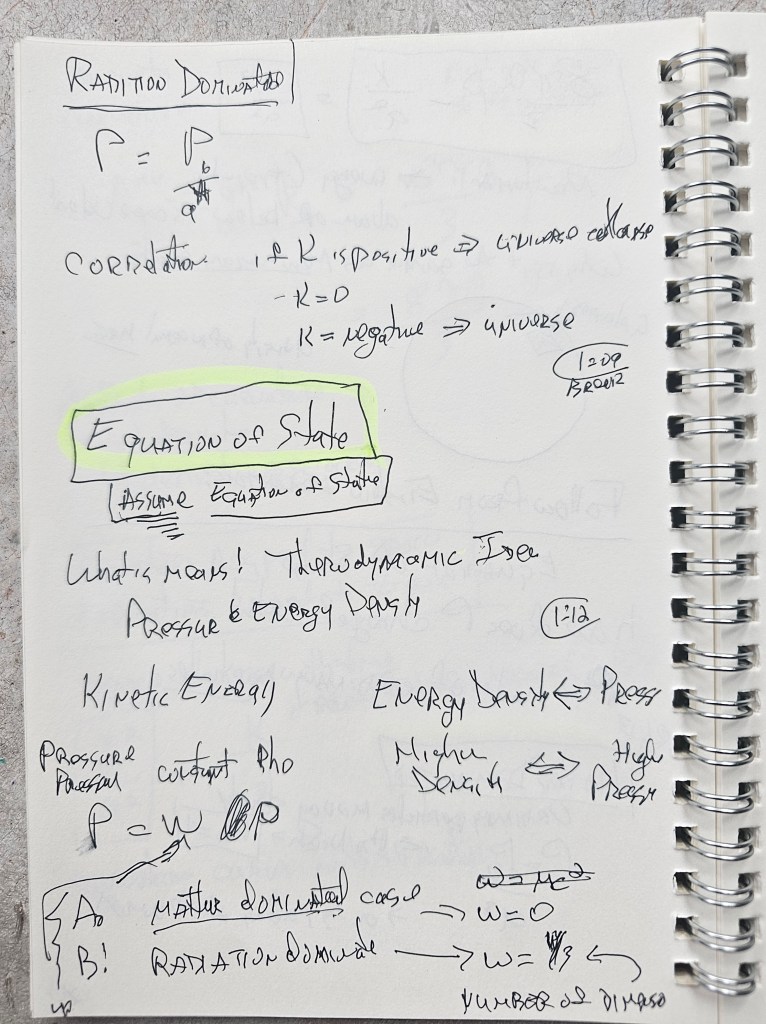 RADITION DOMINATED
P = P₀
a⁴
CORRElation if K is positive ⇒ UNIVERSE collapse
- K = 0
K = negative ⇒ UNIVERSE
1:09
BREAK
EQUATION OF State
ASSUME EQUATION OF State
What is means! Therodynamic Idea
PRESSUR & ENERGY DENSITY
1:12
KINETIC ENERGY ENERGY DENSITY ⇔ PRESS
PRESSURE constant Rho Higher DENSITY ⇔ High PRESSR
P = W P
w = mc²
A. MATTER DOMINATED case → W = 0
B! RADIATION dominate → W = 1/3 ←
NUMBER OF